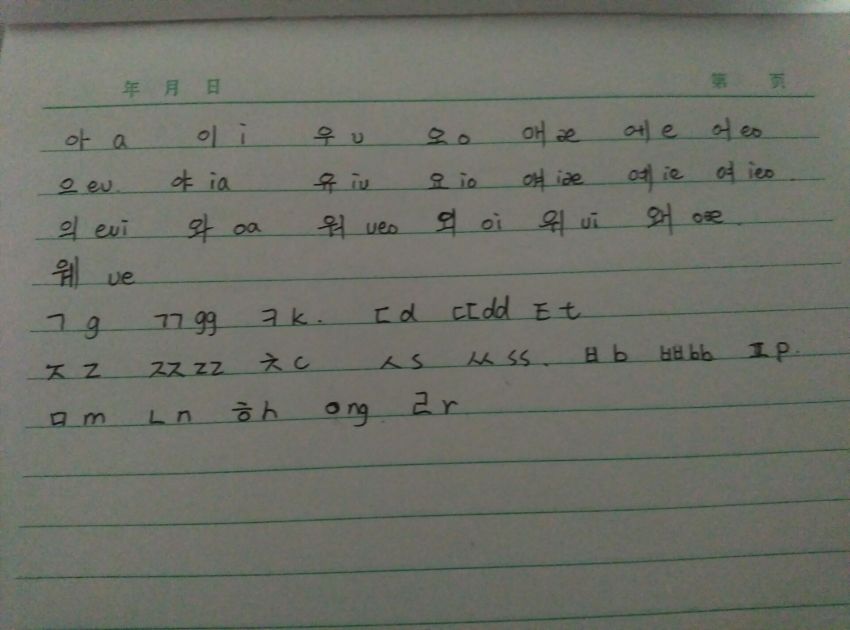 年 月 日 第 页
아 a 이 i 우 u 오 o 애 ae 에 e 어 eo
으 eu. 야 ia 유 iu 요 io 얘 iae 예 ie 여 ieo.
의 eui 와 oa 워 ueo 외 oi 위 ui 왜 oae.
웨 ue
ㄱ g ㄲ gg ㅋ k. ㄷ d ㄸ dd ㅌ t
ㅈ z ㅉ zz ㅊ c ㅅ s ㅆ ss. ㅂ b ㅃ bb ㅍ p.
ㅁ m ㄴ n ㅎ h ㅇ ng ㄹ r